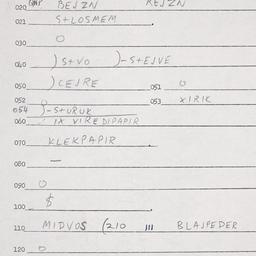 020 BEJZN REJZN
021 S+LOSMEM
030 O
040 )S+VO )-S+EJVE
050 )CEJRE 051 O
052 053 XIRIK
054 )-S+URUK
060 IX VIREDIPAPIR
070 KLEKPAPIR
080 —
090 O
100 $
110 MIDVOS (210 111 BLAJFEDER
120 O